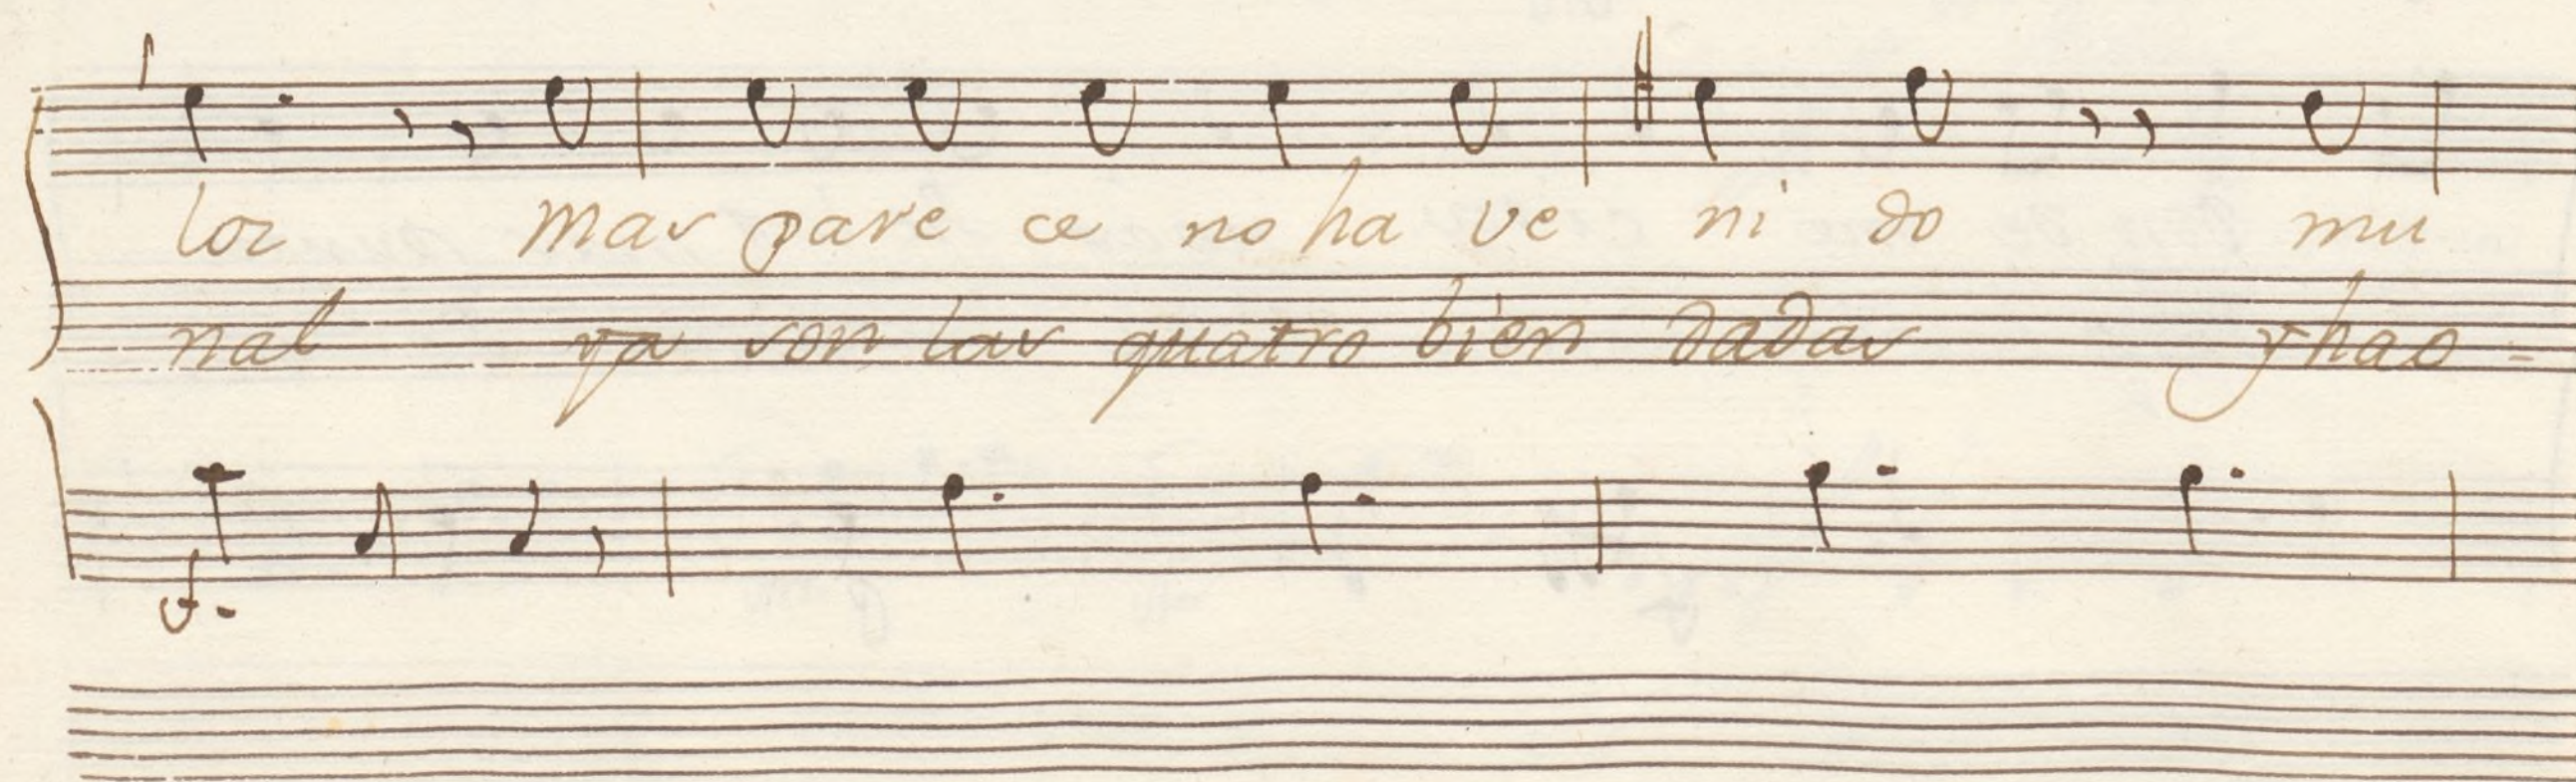 lor mas pare ce no ha ve ni do mu
nal ya son las quatro bien dadas y hao -